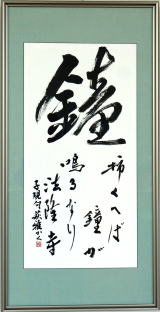 鐘
柿くへば
鐘が
鳴るなり
法隆寺
子規句